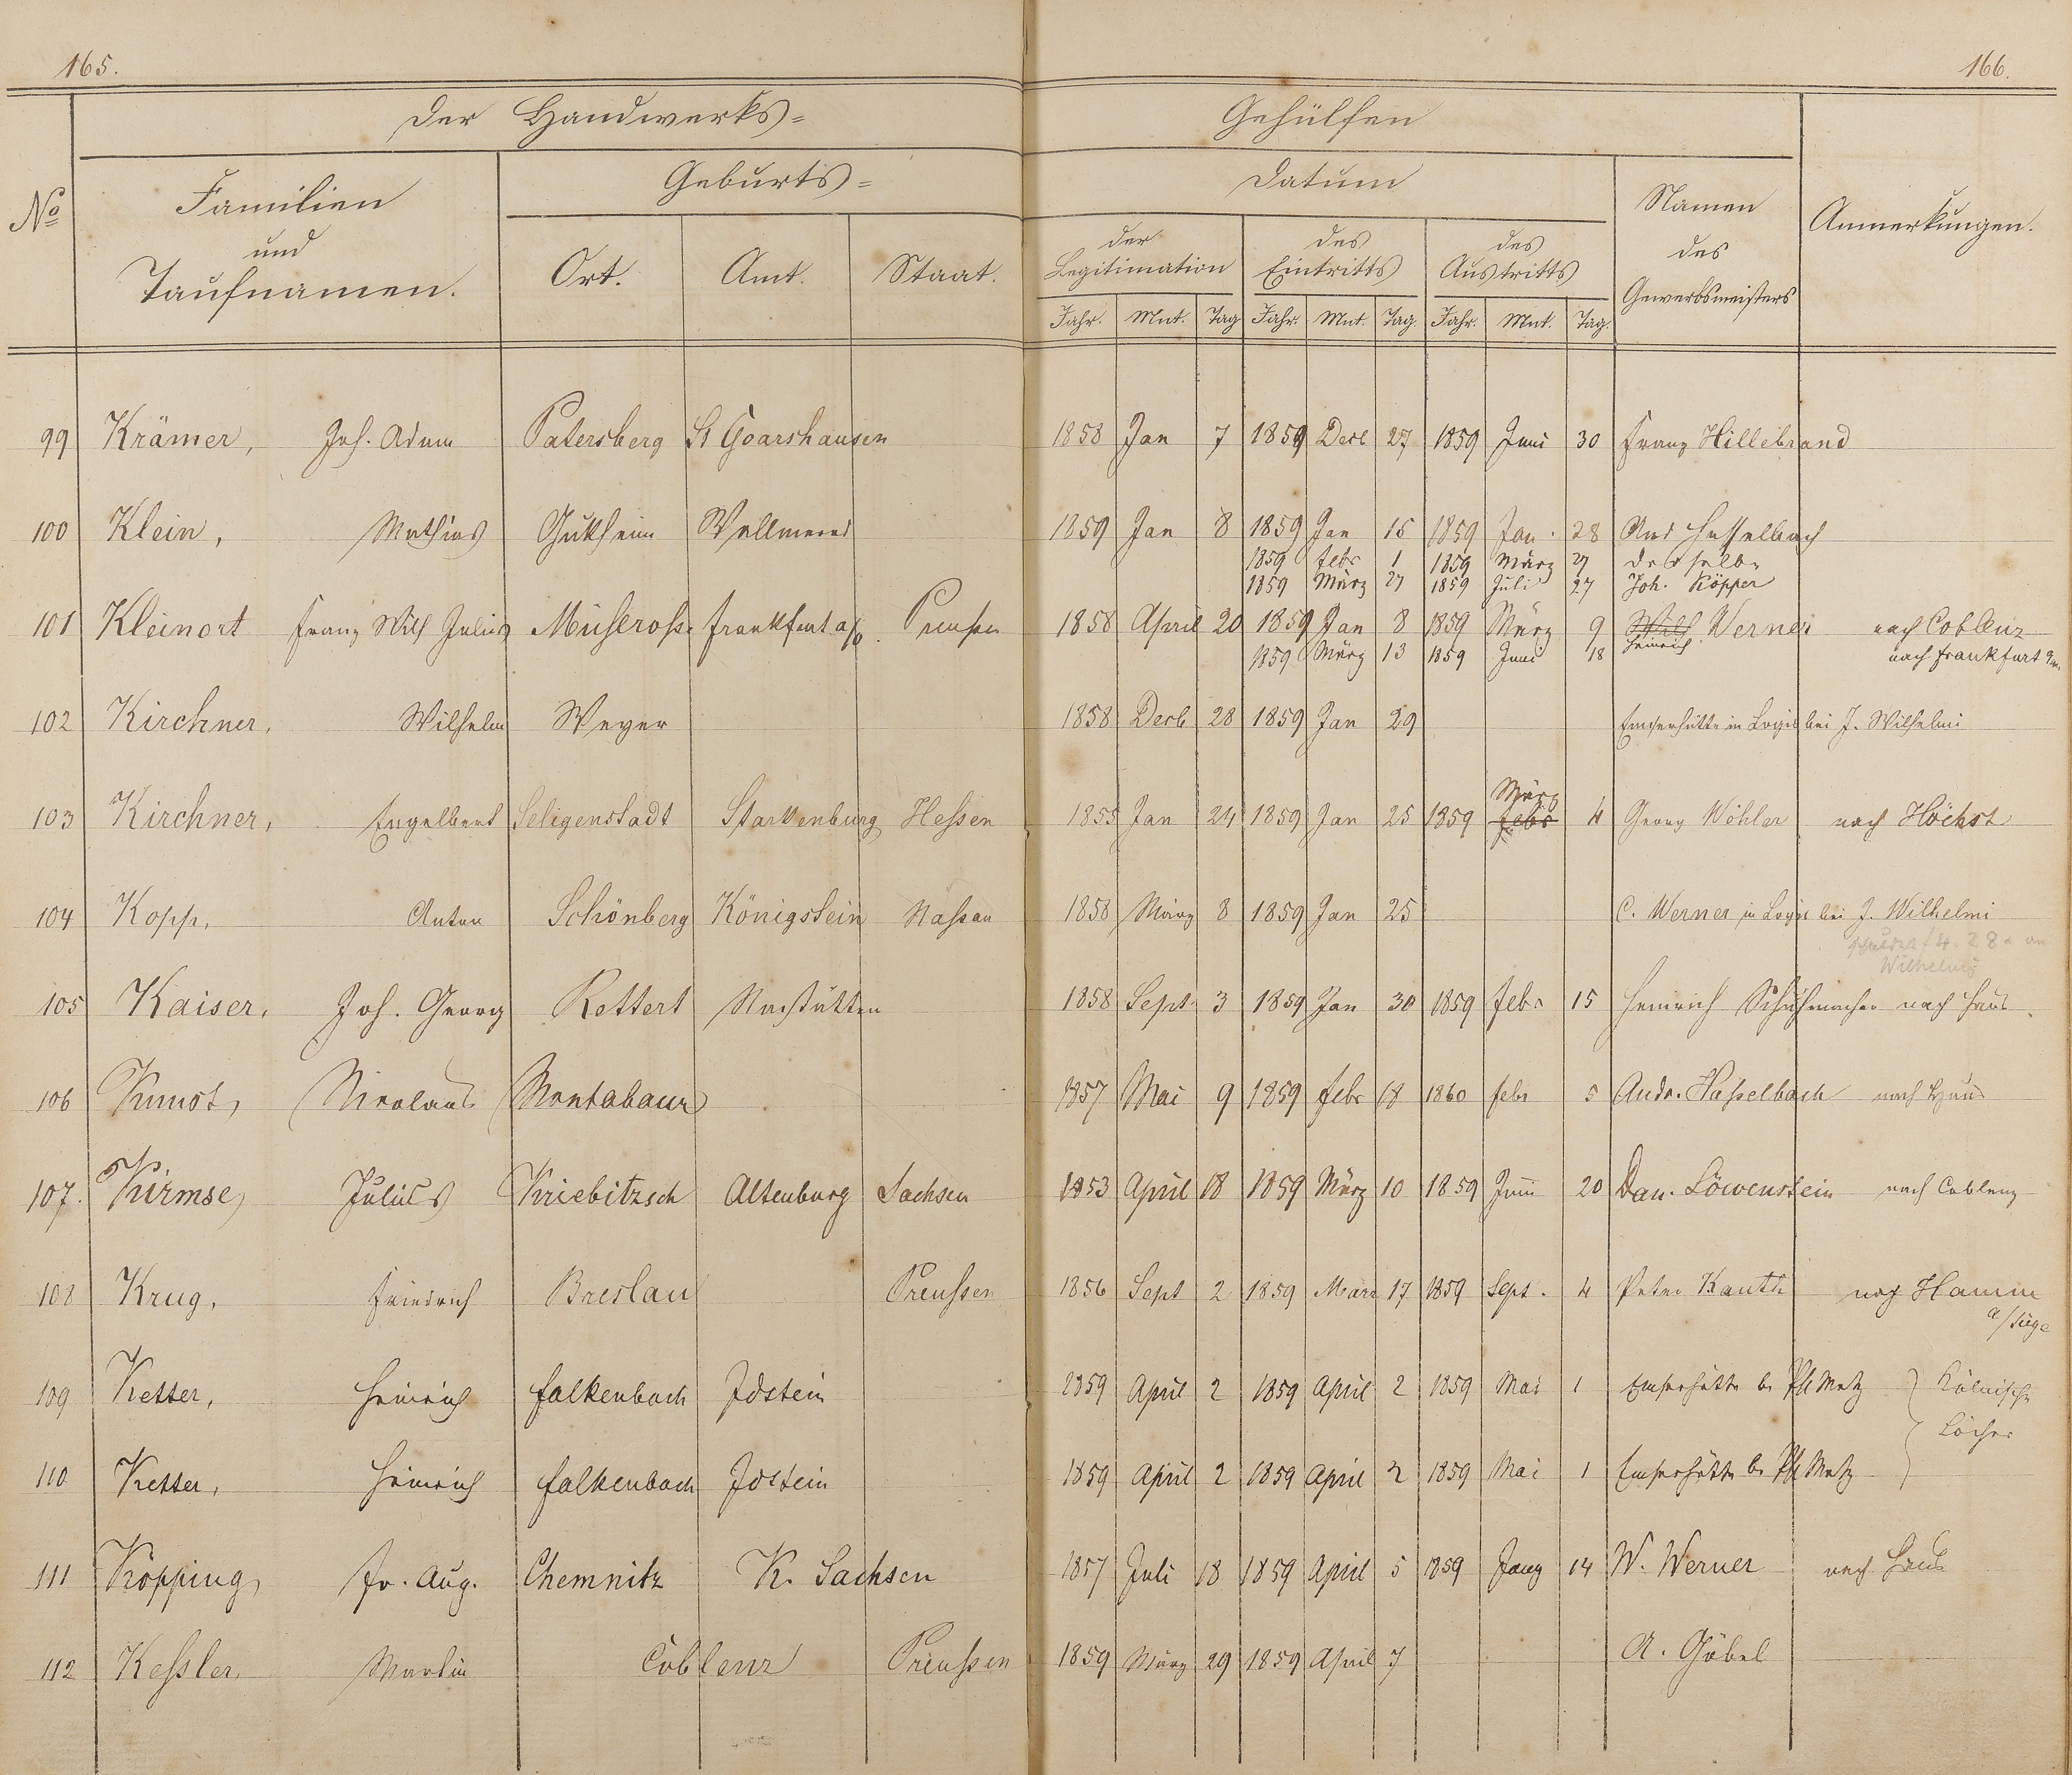 165.
166.
Der Handwerks=
Gehülfen
No
Familien und Taufnamen.
Geburts=
Ort.
Amt.
Staat.
Datum
der Legitimation
des Eintritts
des Austritts
Jahr. Mnt. Tag Jahr. Mnt. Tag. Jahr. Mnt. Tag.
Namen des Gewerbsmeisters
Anmerkungen.
99 Krämer, Joh. Adam Patersberg St Goarshausen 1858 Jan 7 1859 Decb 27 1859 Juni 30 Franz Hillebrand
100 Klein, Mathias Gukheim Wallmerod 1859 Jan 8 1859 Jan 15 1859 Jan. 28 And Hasselbach
1859 Febr 1 1859 März 27 derselbe
1859 März 27 1859 Juli 27 Joh. Köpper
101 Kleinort Franz Wilh Julius Frankfurt a/o. Preußen 1858 April 20 1859 Jan 8 1859 März 9 Wilh Werner nach Coblenz
1859 März 13 1859 Juni 18 Heinrich nach Frankfurt a/m.
102 Kirchner, Wilhelm Weyer 1858 Decb 28 1859 Jan 29 Emserhütte in Logis bei J. Wilhelmi
März
103 Kirchner, Engelbert Seligenstadt Starkenburg Heßen 1855 Jan 24 1859 Jan 25 1859 Febr 4 Georg Wöhler nach Höchst
104 Kopp, Anton Schönberg Königstein Naßau 1858 März 8 1859 Jan 25 C. Werner in Logis bei J. Wilhelmi
Wilhelmi
105 Kaiser, Joh. Georg Rettert Nastätten 1858 Sept. 3 1859 Jan 30 1859 Febr 15 Heinrich Schuhmacher nach Haus.
106 Kunst, Nicolaus Montabaur 1857 Mai 9 1859 Febr 18 1860 Febr 5 Andr. Haßelbach nach Haus
107. Kirmse, Julius Kriebitzsch Altenburg Sachsen 1853 April 18 1859 März 10 1859 Juni 20 Dan. Löwenstein nach Coblenz
108 Krug, Friedrich Breslau Preußen 1856 Sept 2 1859 März 17 1859 Sept. 4 Peter Kauth nach Hamm
a/Sieg
109 Ketter, Heinrich Falkenbach Idstein 1859 April 2 1859 April 2 1859 Mai 1 Emserhütte b. Ph Metz Kölnische
Löcher
110 Ketter, Heinrich Falkenbach Idstein 1859 April 2 1859 April 2 1859 Mai 1 Emserhütte b. Ph Metz
111 Köpping, Fr. Aug. Chemnitz K. Sachsen 1857 Juli 18 1859 April 5 1859 14 W. Werner nach Haus
112 Keßler, Martin Coblenz Preußen 1859 März 29 1859 April 7 A. Göbel